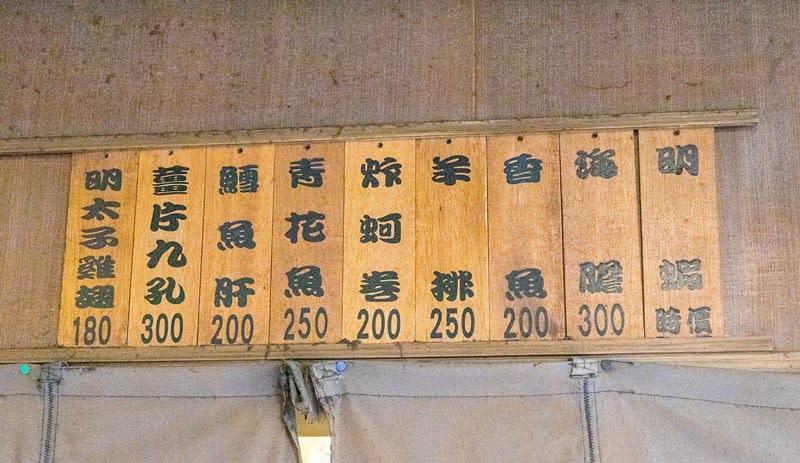 明蝦
時價
海膽
300
香魚
200
羊排
250
蚵卷
200
青花魚
250
鱈魚肝
200
薑片九孔
300
明太子雞翅
180